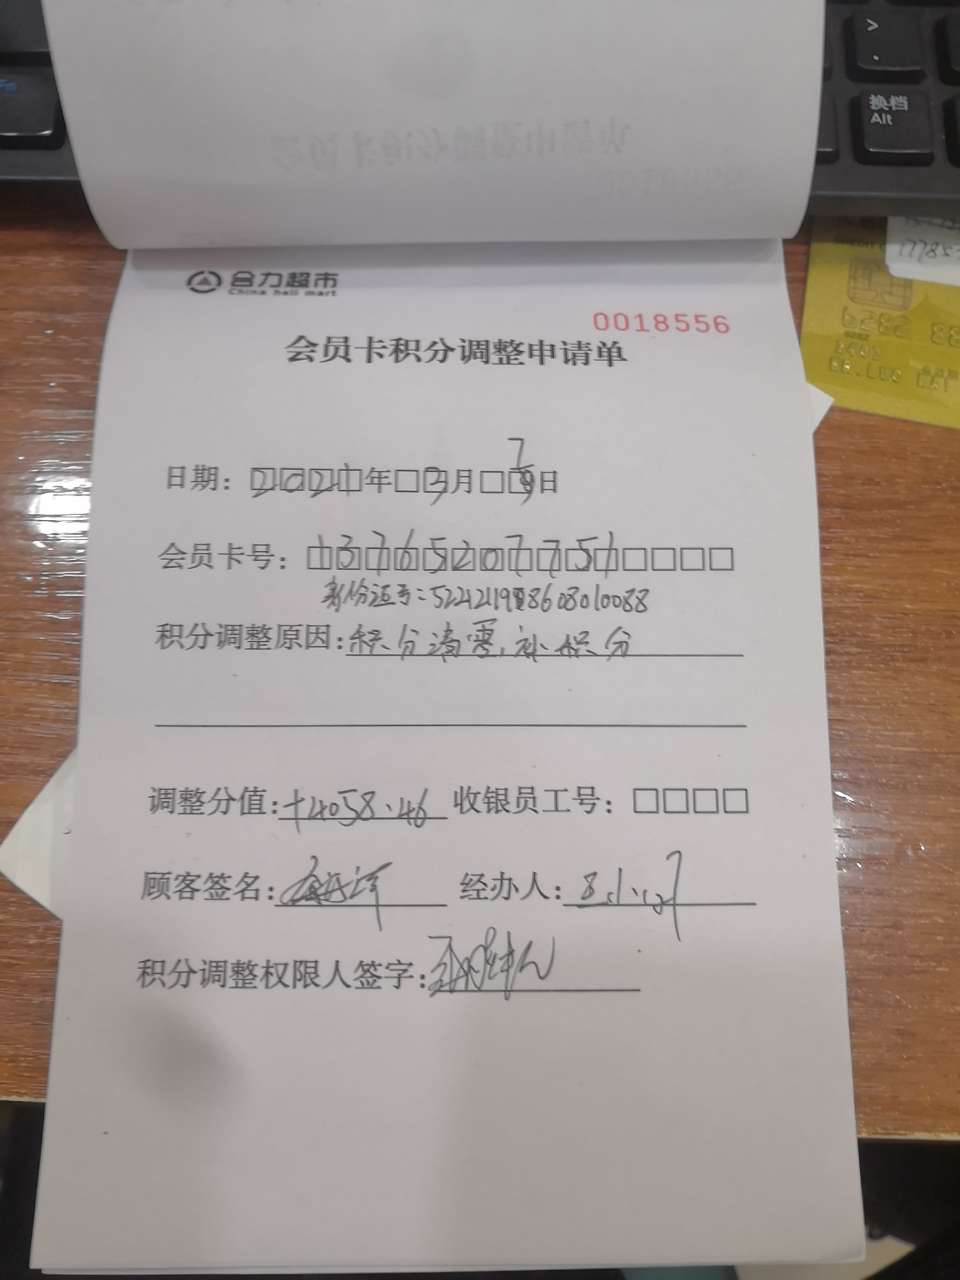 >
.
换档
Alt
合力超市
China hali mart
0018556
会员卡积分调整申请单
日期：2021年□3月□7日
会员卡号：13765207751□□□□
身份证号：522421198603010088
积分调整原因：积分清零，补积分
调整分值：+4058.46 收银员工号：□□□□
顾客签名： 经办人：
积分调整权限人签字：